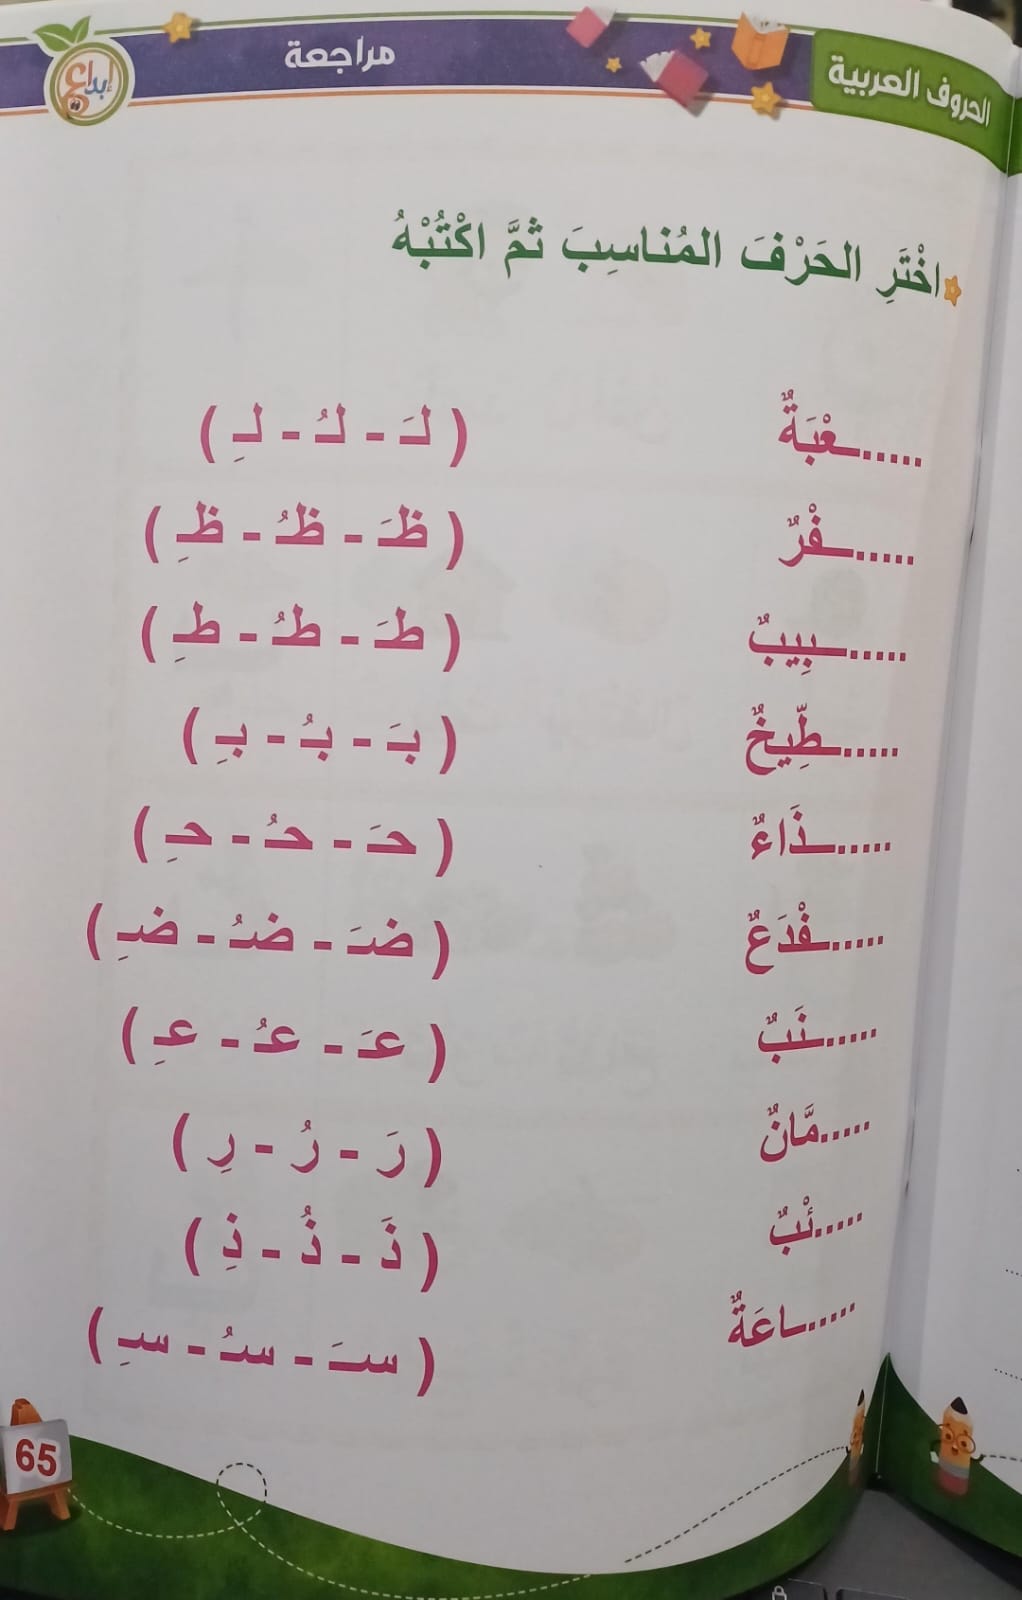 الحروف العربية
مراجعة
إبداع
اخْتَرِ الحَرْفَ المُناسِبَ ثمَّ اكْتُبْهُ
.....ـعْبَةٌ ( لـَ - لـُ - لـِ )
.....ـفْرٌ ( ظـَ - ظـُ - ظـِ )
.....ـبِيبٌ ( طـَ - طـُ - طـِ )
.....ـطِّيخٌ ( بـَ - بـُ - بـِ )
.....ـذَاءٌ ( حـَ - حـُ - حـِ )
.....ـفْدَعٌ ( ضـَ - ضـُ - ضـِ )
.....ـنَبٌ ( عـَ - عـُ - عـِ )
.....مَّانٌ ( رَ - رُ - رِ )
.....ئْبٌ ( ذَ - ذُ - ذِ )
.....ـاعَةٌ ( سـَ - سـُ - سـِ )
65